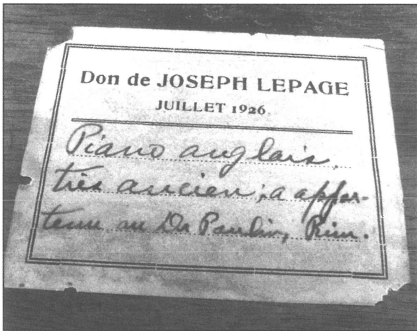 Don de JOSEPH LEPAGE
JUILLET 1926
Piano anglais,
très ancien; a appar-
tenu au Dr Poulin, Rim.